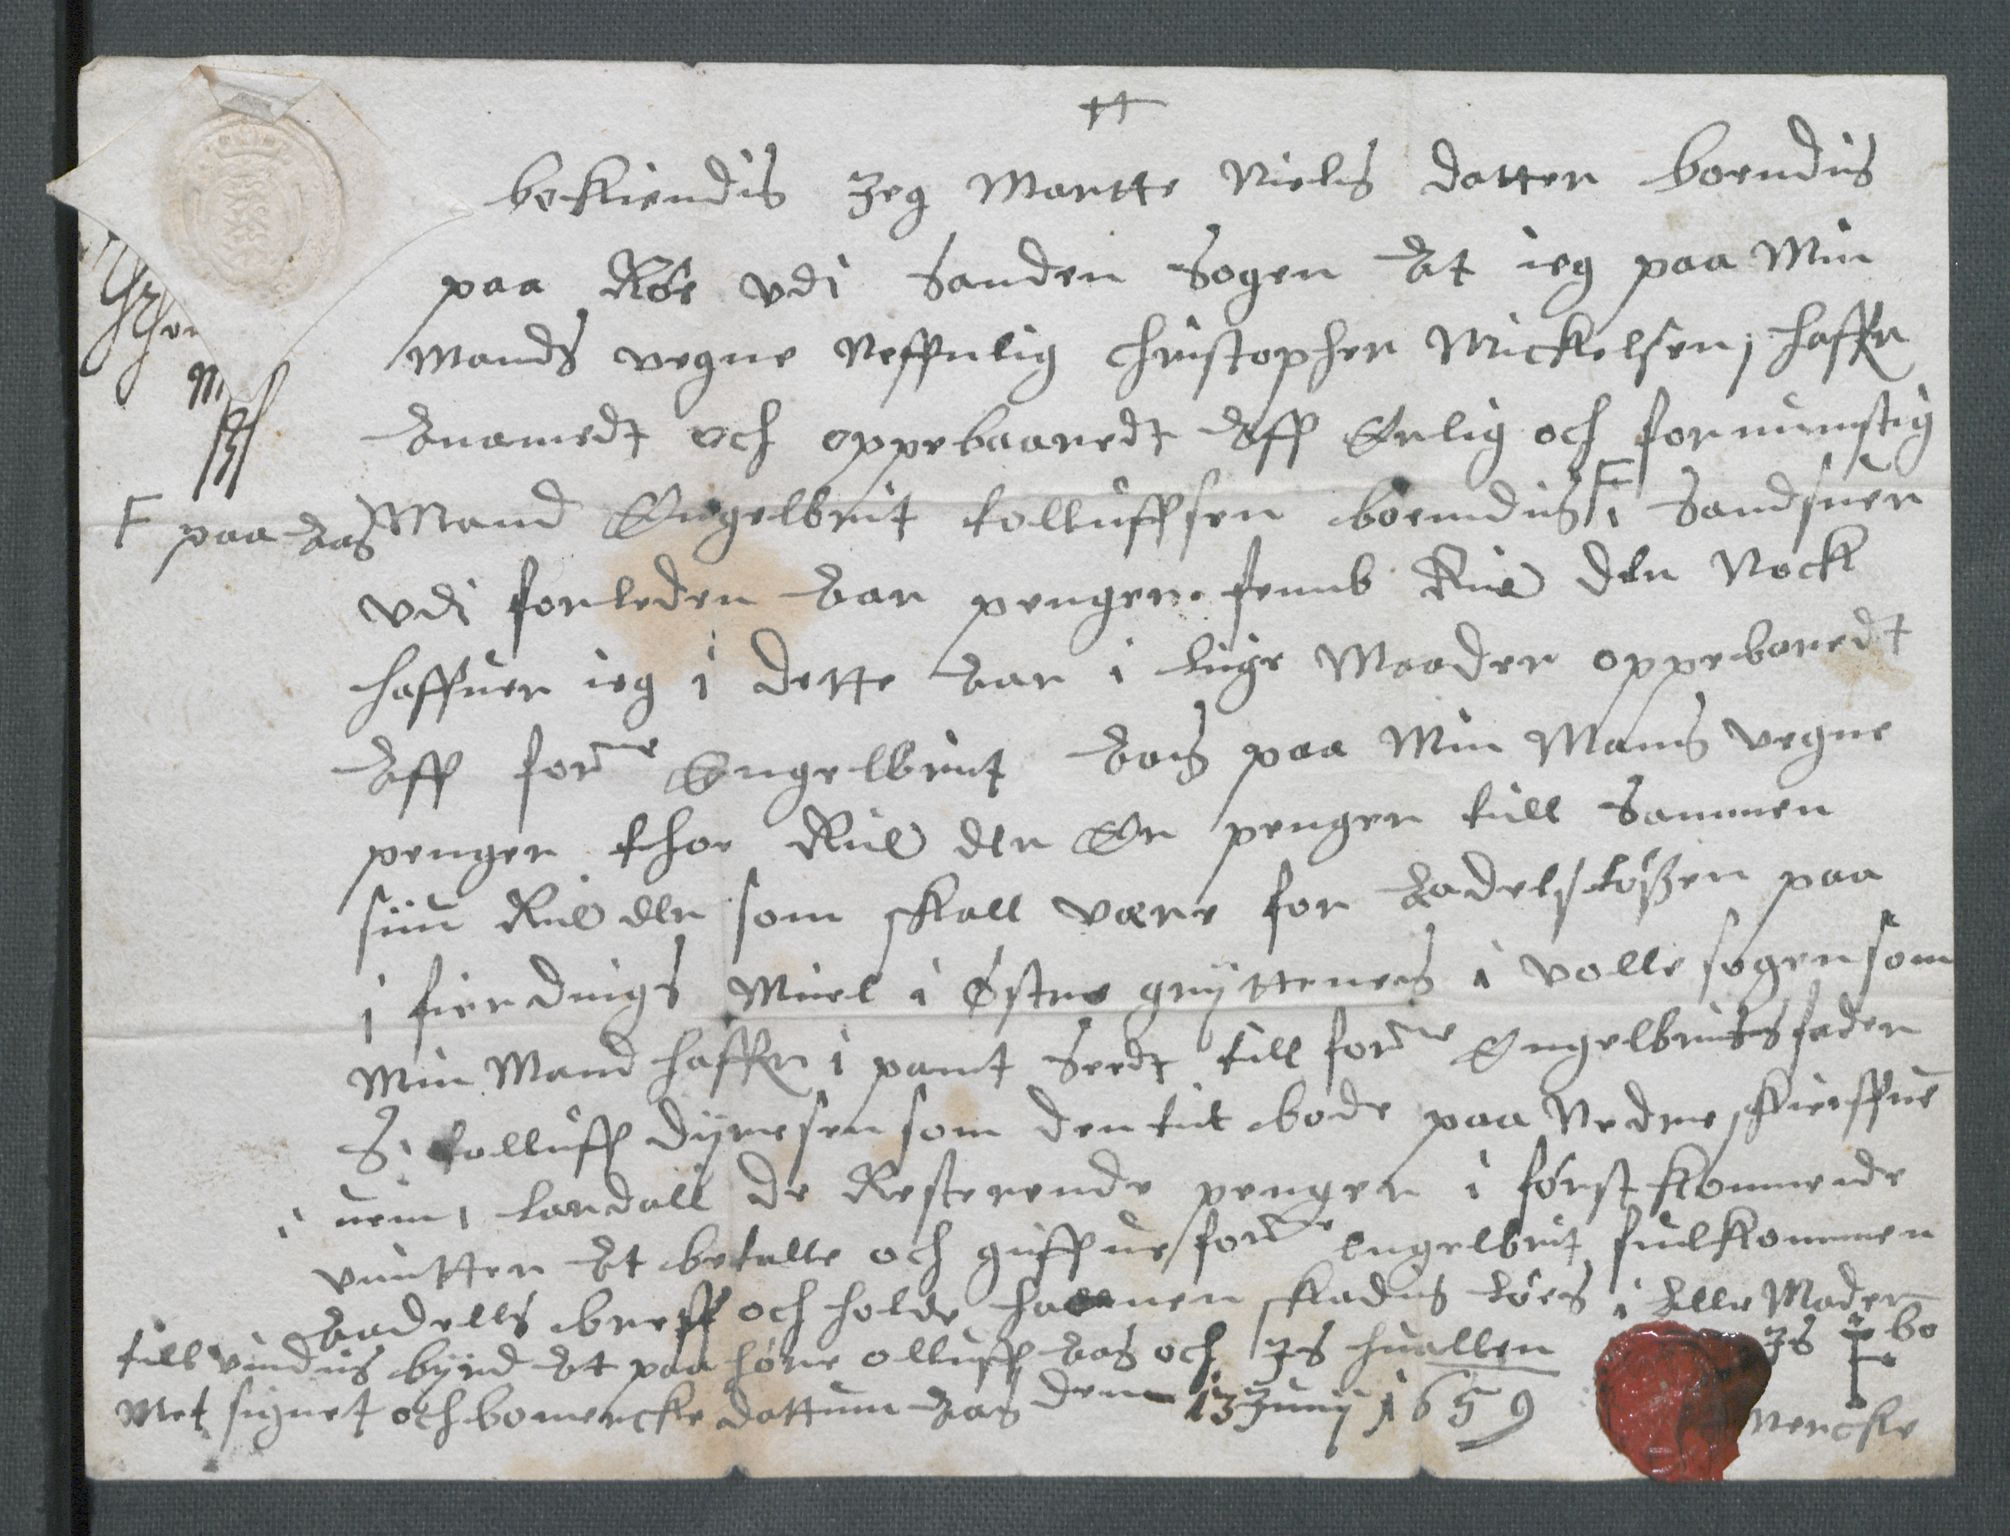 bekiendis Jeg Martte Niels datter boendis
paa Röe udi Sanden Sogen At ieg paa Min
Mands vegne Neffnlig Christopher Mickelsen, haffr
Anamedt och oppebaaredt Aff Erlig och fornumstig
Mand Engelbrit tolluffsen boendis F i Sandsuer
F paa Aas
vdi forleden Aar penger femb Rix dlr Nock
haffuer ieg i dette Aar i lige Maader oppebaredt
Aff forne Engelbrit Aas paa Min Mans vegne
penger thoe Rix dlr Er penger till Sammen
siu Rix dlr som skall være for Aadelsløßen paa
i fierdings Miel i Østre grÿttenes i volle sogen som
Min Mand haffr i pant Sedt till forne Engelbritz fader
S. tolluff Dÿresen som den tid bode paa Nedre skierffue
i nemi landall de Resterende penger i först kommende
vintter At betalle och giffue forne Engelbrit fulkommen
Aadells breff och holde ha nem skadis löes i Alle Mader
till vindis bÿrd At paa høre olluff Aas och Js huallen Js bo
Met signet och bomercke dattum Aas den 13 Junij 1659 Mercke